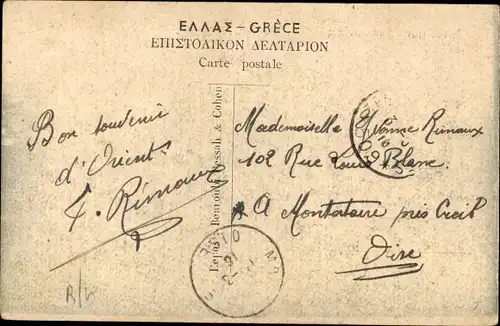 ΕΛΛΑΣ – GRÈCE
ΕΠΙΣΤΟΛΙΚΟΝ ΔΕΛΤΑΡΙΟΝ
Carte postale
Bon souvenir
d'Orient
F. Rimaux
Benroubi, Pessah & Cohen
Mademoiselle Yvonne Rimaux
102 Rue Louis Blanc.
A Montataire près Creil
Oise
R/V